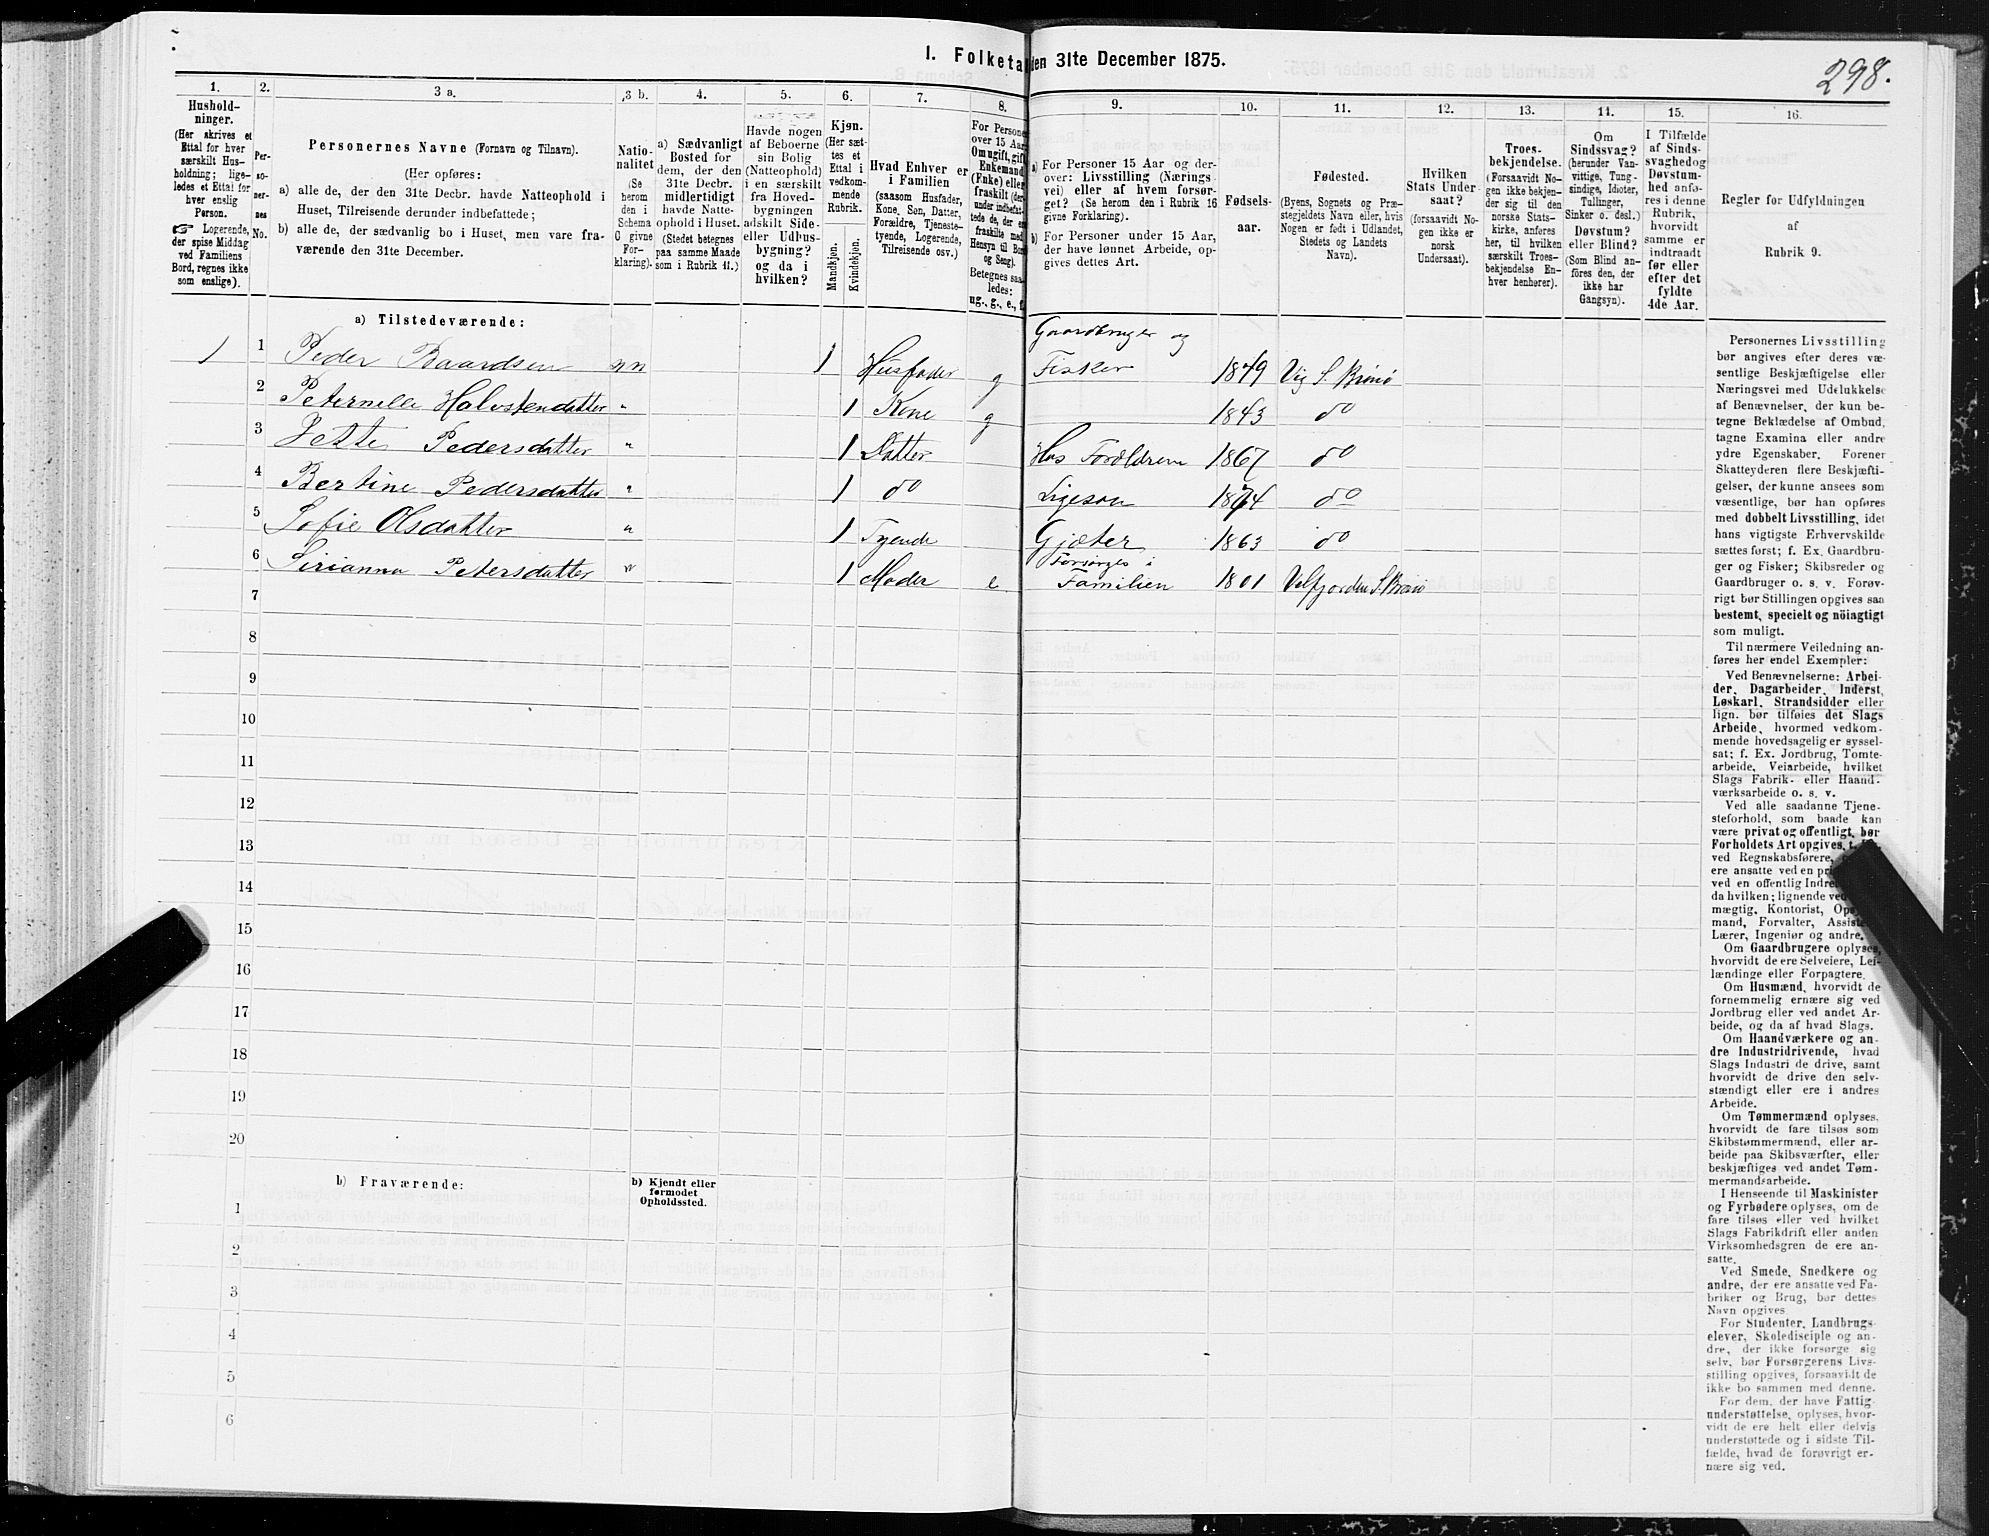 I. Folketa
den 31te December 1875.
298.
1.
Hushold-
ninger.
(Her skrives et
Ettal for hver
særskilt Hus-
holdning; lige-
ledes et Ettal for
hver enslig
Person.
☞ Logerende,
der spise Middag
ved Familiens
Bord, regnes ikke
som enslige).
2.
Per-
so-
ner-
nes
No.
3 a.
Personernes Navne (Fornavn og Tilnavn).
(Her opføres:
a) alle de, der den 31te Decbr. havde Natteophold i
Huset, Tilreisende derunder indbefattede;
b) alle de, der sædvanlig bo i Huset, men vare fra-
værende den 31te December.
3 b.
Natio-
nalitet
(Se
herom
den i
Schema
G givne
For-
klaring).
4.
a) Sædvanligt
Bosted for
dem, der den
31te Decbr.
midlertidigt
havde Natte-
ophold i Huset.
(Stedet betegnes
paa samme Maade
som i Rubrik 11.)
5.
Havde nogen
af Beboerne
sin Bolig
(Natteophold)
i en særskilt
fra Hoved-
bygningen
adskilt Side-
eller Udhus-
bygning?
og da i
hvilken?
6.
Kjøn.
(Her sæt-
tes et
Ettal i
vedkom-
mende
Rubrik.
Mandkjøn.
Kvindekjøn.
7.
Hvad Enhver er
i Familien
(saasom Husfader,
Kone, Søn, Datter,
Forældre, Tjeneste-
tyende, Logerende,
Tilreisende osv.)
8.
For Persone
over 15 Aar
Om ugift, gift
Enkemand
(Enke) eller
fraskilt (der-
under indbefat-
tede de, der er
fraskilte med
Hensyn til Bor
og Seng).
Betegnes saa
ledes:
ug., g., e., f.
9.
a) For Personer 15 Aar og der-
over: Livsstilling (Nærings
vei) eller af hvem forsør-
get? (Se herom den i Rubrik 16
givne Forklaring).
b) For Personer under 15 Aar,
der have lønnet Arbeide, op-
gives dettes Art.
10.
Fødsels-
aar.
11.
Fødested.
(Byens, Sognets og Præ-
stegjeldets Navn eller, hvis
Nogen er født i Udlandet,
Stedets og Landets
Navn).
12.
Hvilken
Stats Under-
saat?
(forsaavidt No-
gen ikke er
norsk
Undersaat).
13.
Troes-
bekjendelse.
(Forsaavidt No-
gen ikke bekjen-
der sig til den
norske Stats-
kirke, anføres
her, til hvilken
særskilt Troes-
bekjendelse En-
hver henhører).
14.
Om
Sindssvag?
(herunder Van-
vittige, Tung-
sindige, Idioter,
Tullinger,
Sinker o. desl.)
Døvstum?
eller Blind?
(Som Blind an-
føres den, der
ikke har
Gangsyn).
15.
I Tilfælde
af Sinds-
svaghed og
Døvstum-
hed anfø-
res i denne
Rubrik,
hvorvidt
samme er
indtraadt
før eller
efter det
fyldte
4de Aar.
16.
Regler for Udfyldningen
af
Rubrik 9.
a) Tilstedeværende:
Gaardbruger og
1 1 Peder Baardsen nn 1 Husfader g Fisker 1849 Vig S. Brønø
2 Peternelle Halvstendatter " 1 Kone g 1843 do
3 Jette Pedersdatter " 1 Datter Hos Forældrene 1867 do
4 Bertine Pedersdatter " 1 do Ligesaa 1874 do
5 Sofie Olsdatter " 1 Tyende Gjæter 1863 do
Forsørges i
6 Sirianna Petersdatter " 1 Moder e Familien 1801 Velfjorden S. Brønø
7
8
9
10
11
12
13
14
15
16
17
18
19
20
b) Fraværende:
b) Kjendt eller
formodet
Opholdssted.
1
2
3
4
5
6
Personernes Livsstilling
bør angives efter deres væ-
sentlige Beskjæftigelse eller
Næringsvei med Udelukkelse
af Benævnelser, der kun be-
tegne Beklædelse af Ombud,
tagne Examina eller andre
ydre Egenskaber. Forener
Skatteyderen flere Beskjæfti-
gelser, der kunne ansees som
væsentlige, bør han opføres
med dobbelt Livsstilling, idet
hans vigtigste Erhvervskilde
sættes først; f. Ex. Gaardbru-
ger og Fisker; Skibsreder og
Gaardbruger o. s. v. Forøv-
rigt bør Stillingen opgives saa
bestemt, specielt og nöiagtigt
som muligt.
Til nærmere Veiledning an-
føres her endel Exempler:
Ved Benævnelserne: Arbei-
der, Dagarbeider, Inderst,
Løskarl, Strandsidder eller
lign. bør tilføies det Slags
Arbeide, hvormed vedkom-
mende hovedsagelig er syssel-
sat; f. Ex. Jordbrug, Tomte-
arbeide, Veiarbeide, hvilket
Slags Fabrik- eller Haand-
værksarbeide o. s. v.
Ved alle saadanne Tjene-
steforhold, som baade kan
være privat og offentligt, bør
Forholdets Art opgives, t.
ved Regnskabsførere,
ere ansatte ved en pri
ved en offentlig Indre
da hvilken; lignende ved
mægtig, Kontorist, Op
mand, Forvalter, Assist
Lærer, Ingeniør og andre.
Om Gaardbrugere oplyses,
hvorvidt de ere Selveiere, Lei-
lændinge eller Forpagtere.
Om Husmænd, hvorvidt de
fornemmelig ernære sig ved
Jordbrug eller ved andet Ar-
beide, og da af hvad Slags.
Om Haandværkere og an-
dre Industridrivende, hvad
Slags Industri de drive, samt
hvorvidt de drive den selv-
stændigt eller ere i andres
Arbeide.
Om Tømmermænd oplyses,
hvorvidt de fare tilsøs som
Skibstømmermænd, eller ar-
beide paa Skibsværfter, eller
beskjæftiges ved andet Tøm-
mermandsarbeide.
I Henseende til Maskinister
og Fyrbødere oplyses, om de
fare tilsøs eller ved hvilket
Slags Fabrikdrift eller anden
Virksomhedsgren de ere an-
satte.
Ved Smede, Snedkere og
andre, der ere ansatte ved Fa-
briker og Brug, bør dettes
Navn opgives.
For Studenter, Landbrugs-
elever, Skoledisciple og an-
dre, der ikke forsørge sig
selv, bør Forsørgerens Livs-
stilling opgives, forsaavidt de
ikke bo sammen med denne.
For dem, der have Fattig-
understøttelse, oplyses, hvor-
vidt de ere helt eller delvis
understøttede og i sidste Til-
fælde, hvad de forøvrigt er-
nære sig ved.